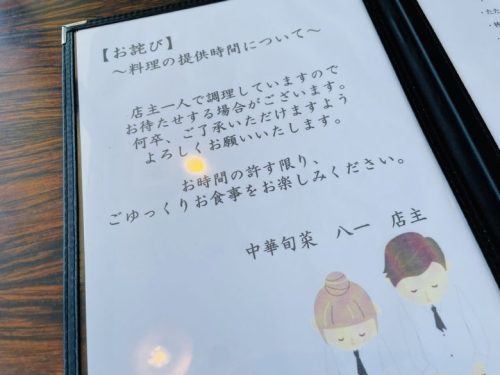 【お詫び】
～料理の提供時間について～
店主一人で調理していますので
お待たせする場合がございます。
何卒、ご了承いただけますよう
よろしくお願いいたします。
お時間の許す限り、
ごゆっくりお食事をお楽しみください。
中華旬菜　八一　店主